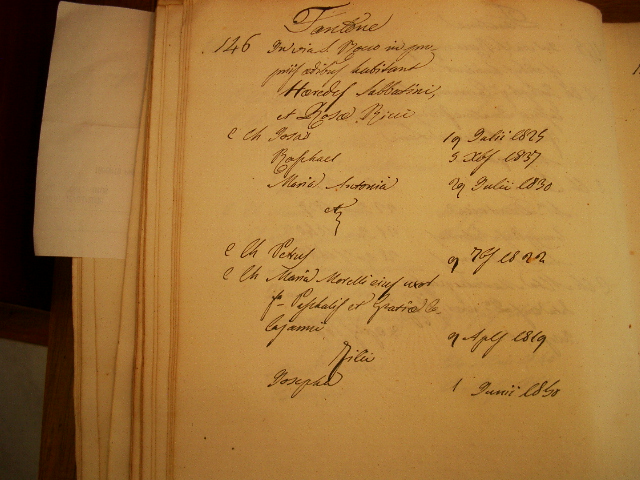 Fantone
146 In via d. Vico in pro-
priis ædibus habitant
Hæredes Sabbatini,
et Rosæ Ricci
c Ch Rosa 19 Julii 1825
Raphael 5 Xbris 1837
Maria Antonia 29 Julii 1830
et
c Ch Petrus 9 7bris 1822
c Ch Maria Morelli ejus uxor
f- Paschalis et Gratiæ
9 Aplis 1819
Filii
Josepha 1 Junii 1850